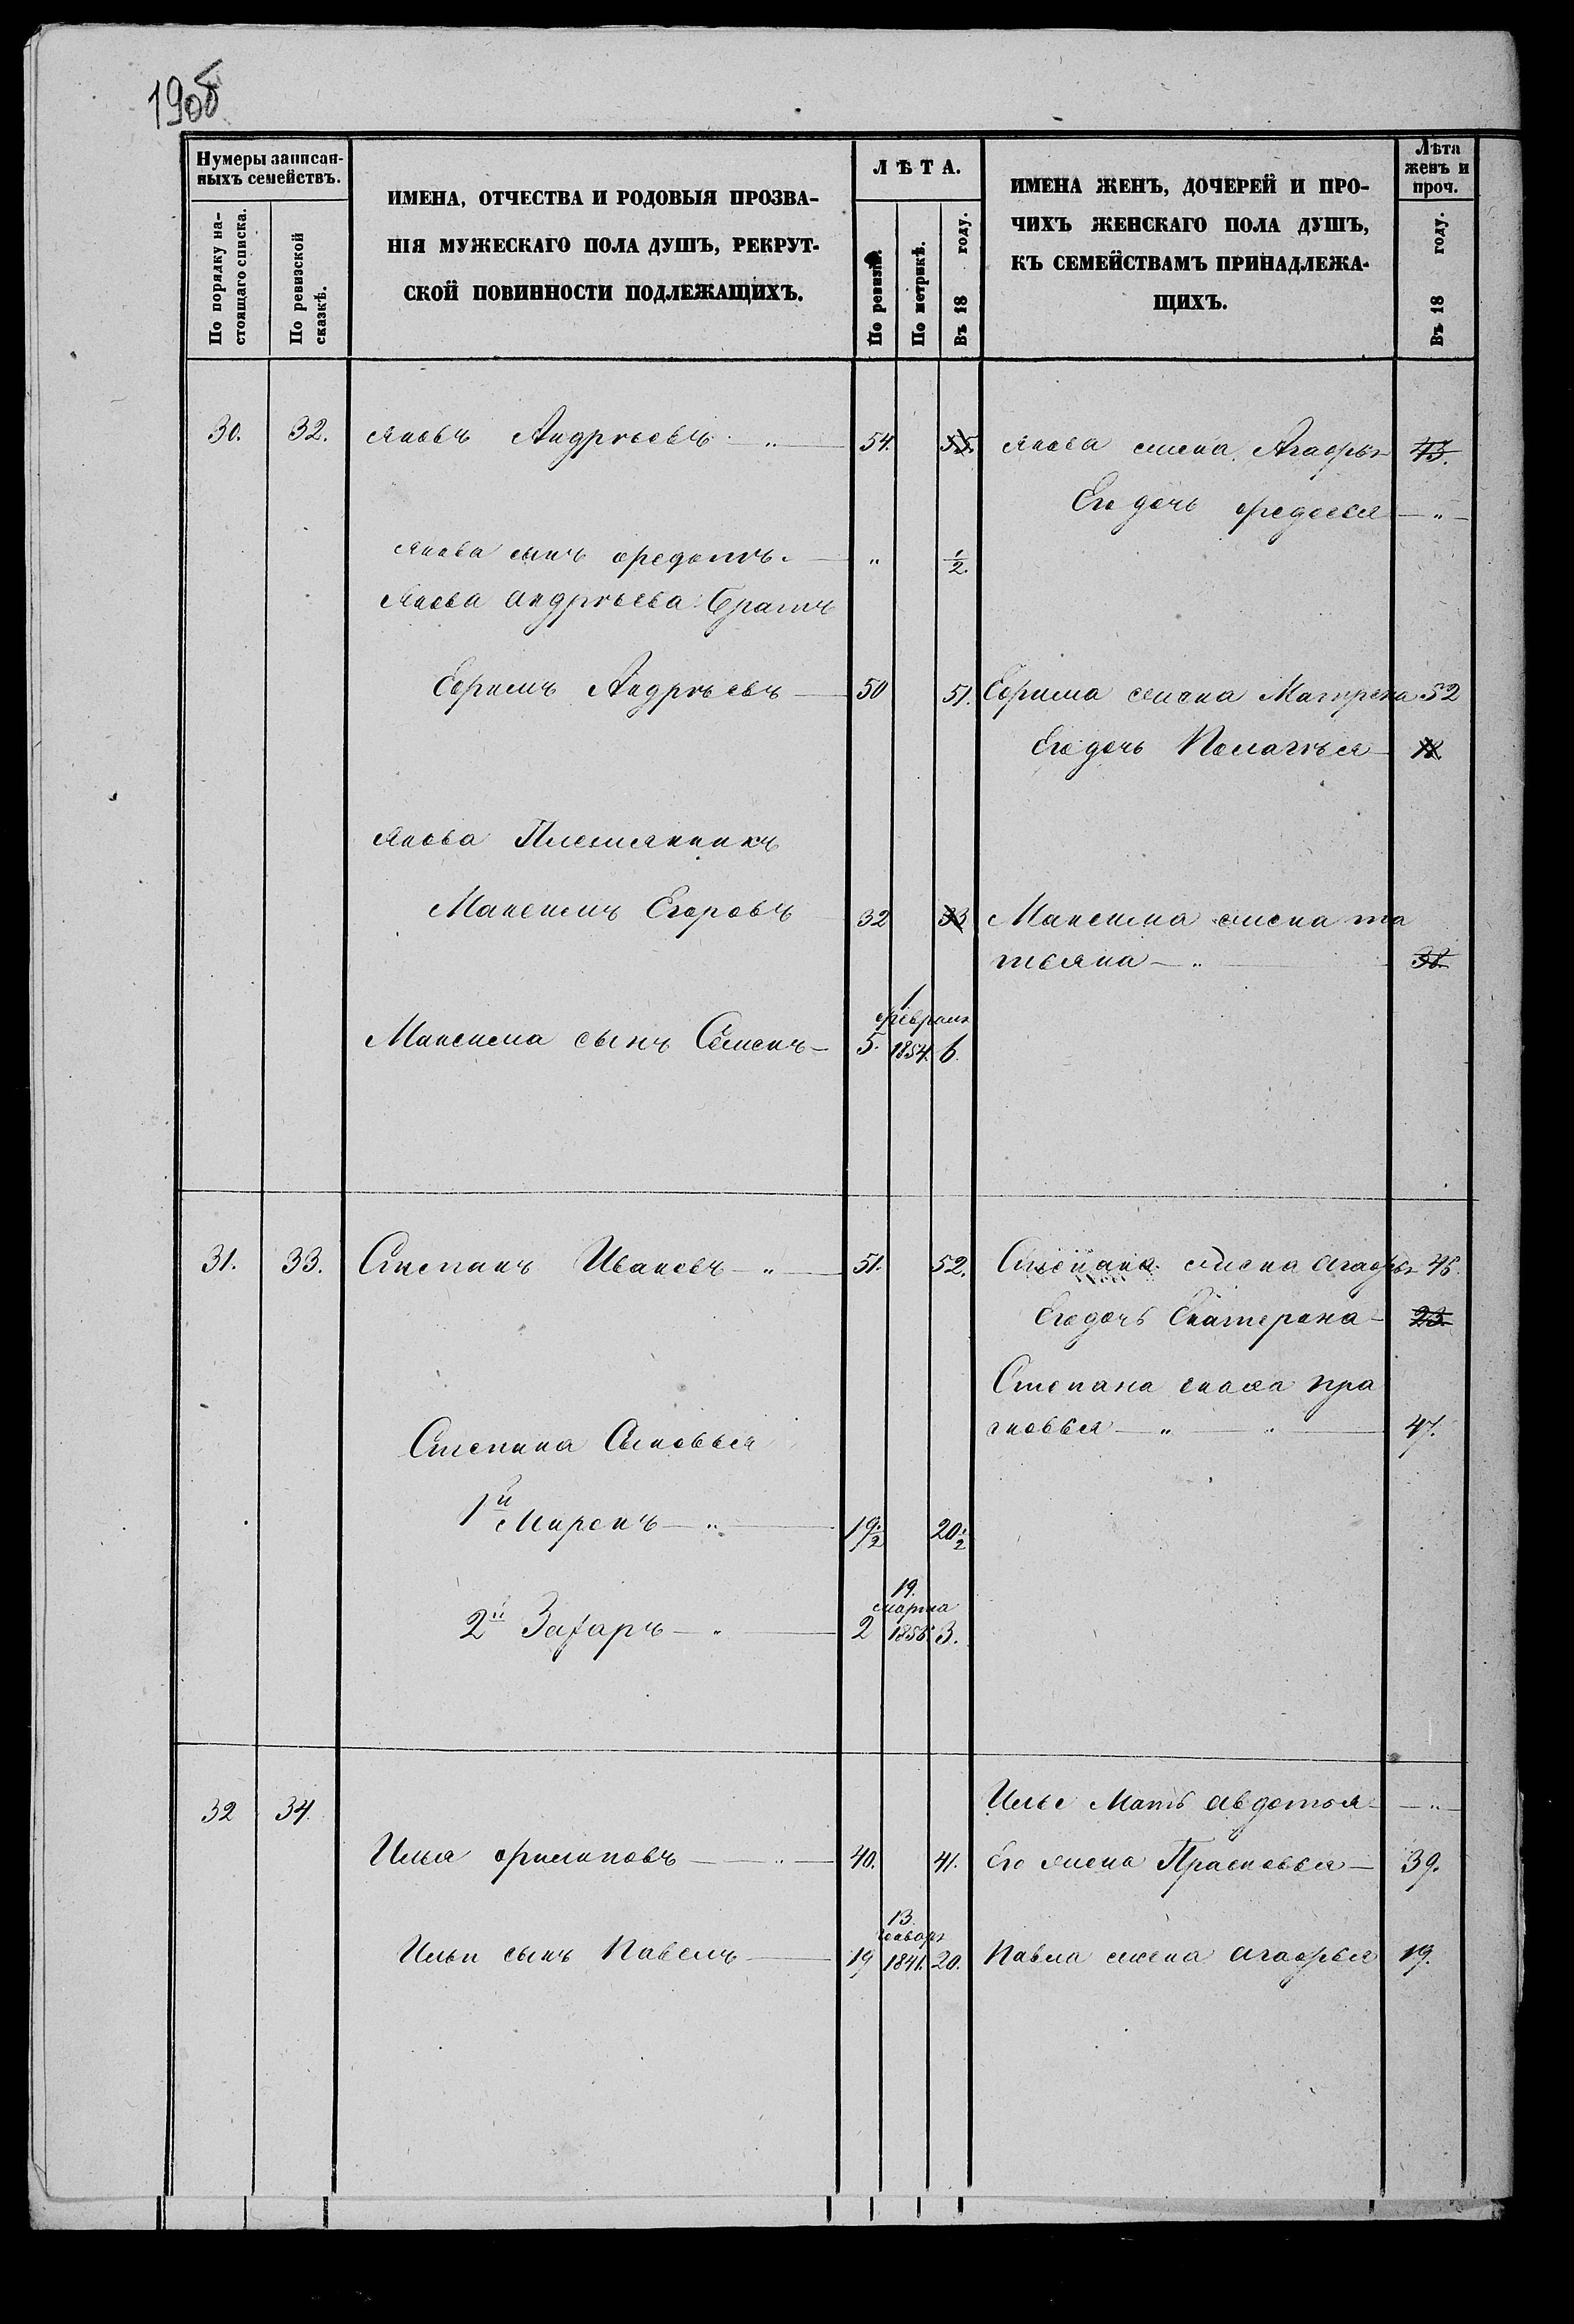 190об
Нумеры записан-
ныхъ семействъ.
По порядку на-
стоящаго списка.
По ревизской
сказкѣ.
ИМЕНА, ОТЧЕСТВА И РОДОВЫЯ ПРОЗВА-
НІЯ МУЖЕСКАГО ПОЛА ДУШЪ, РЕКРУТ-
СКОЙ ПОВИННОСТИ ПОДЛЕЖАЩИХЪ.
ЛѢТА.
По ревизіи.
По метрикѣ.
Въ 18 году.
ИМЕНА ЖЕНЪ, ДОЧЕРЕЙ И ПРО-
ЧИХЪ ЖЕНСКАГО ПОЛА ДУШЪ,
КЪ СЕМЕЙСТВАМЪ ПРИНАДЛЕЖА-
ЩИХЪ.
Лѣта
женъ и
проч.
Въ 18 году.
30. 32. Яковъ Андрѣевъ 54. 55. Якова жена Агафья 43.
Его дочь Федосья
Якова сынъ Федотъ 1/2.
Якова Андрѣева братъ
Ефимъ Андрѣевъ 50 51. Ефима жена Матрена 52
Его дочь Пелагѣя 18.
Якова Племянникъ
Максимъ Егоровъ 32 33 Максима жена та
тьяна 38.
1.
Февраля
Максима сынъ Семенъ 5. 1854. 6.
31. 33. Степанъ Ивановъ 51. 52. Степана жена Агафья 46.
Его дочь Екатерина 23.
Степана сноха пра
сковья 47.
Степана Сыновья
1й Миронъ 19 1/2 20 1/2
19.
марта
2й Захаръ 2 1856. 3.
32 34. Илье Мать Авдотья
Илья Филиповъ 40. 41. Его жена Прасковья 39.
13.
Генваря
Ильи сынъ Павелъ 19 1841. 20. Павла жена Агафья 19.